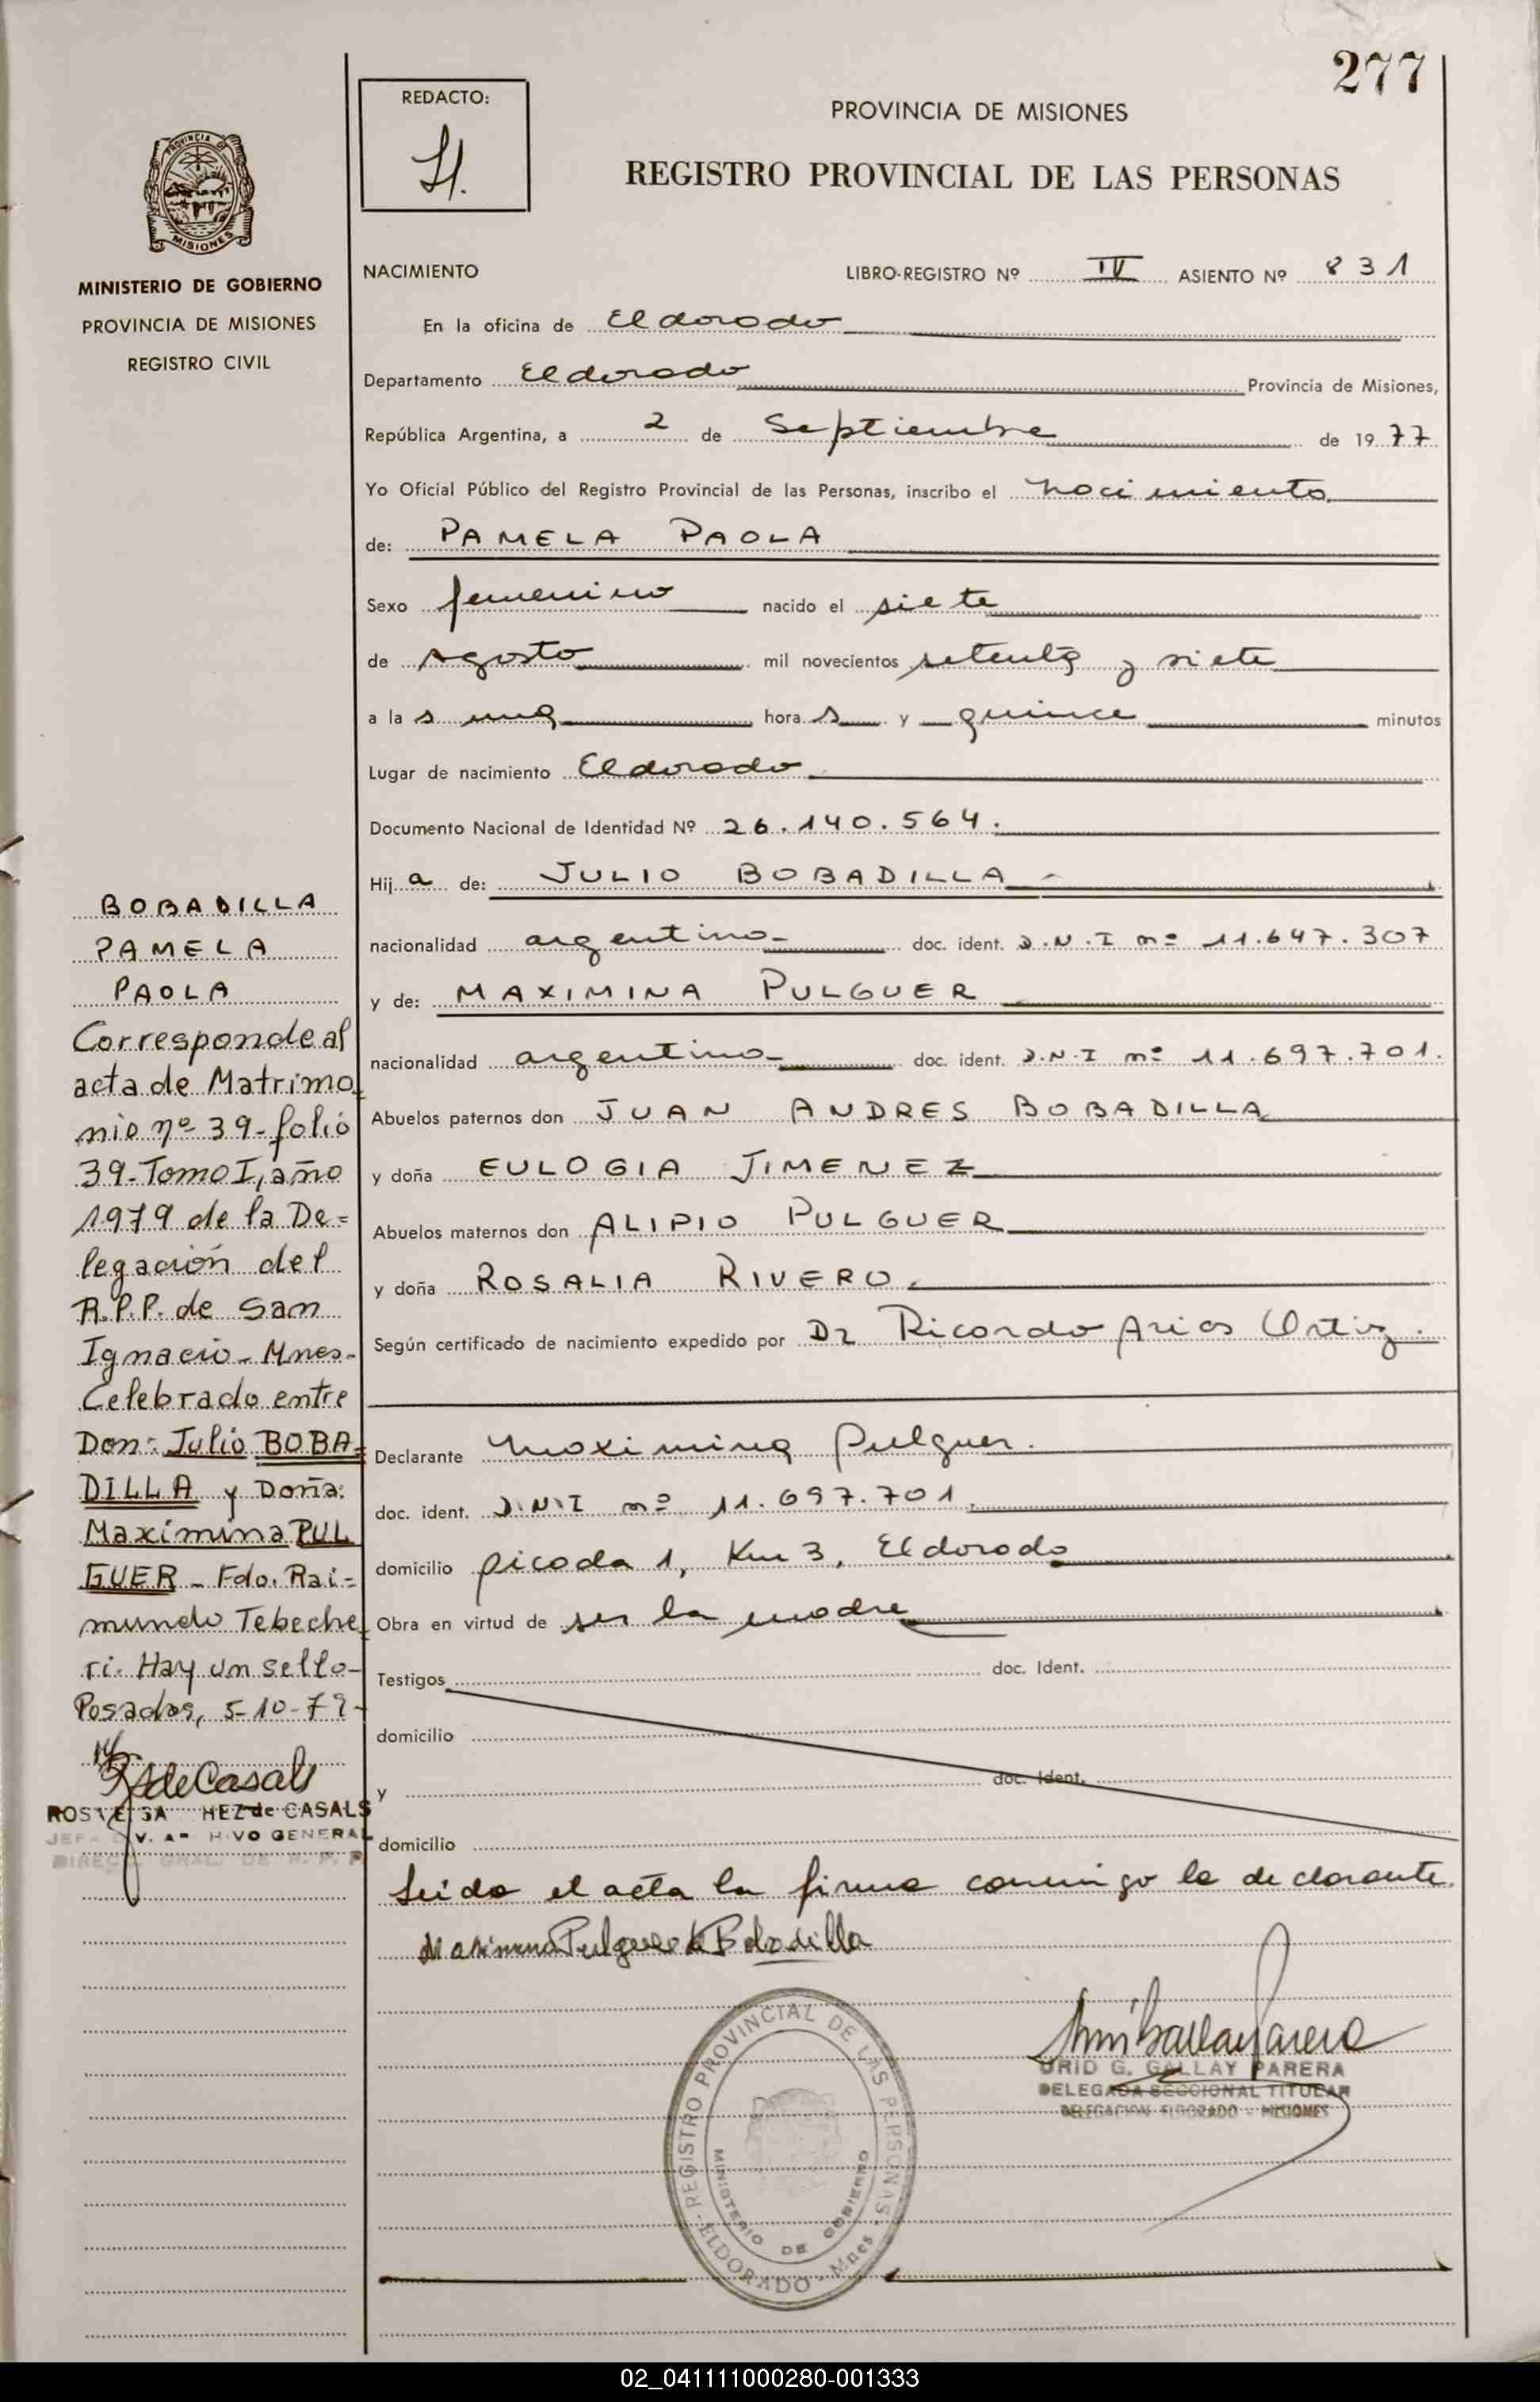 277
REDACTO:
PROVINCIA DE MISIONES
REGISTRO PROVINCIAL DE LAS PERSONAS
PROVINCIA DE
MISIONES
MINISTERIO DE GOBIERNO
PROVINCIA DE MISIONES
REGISTRO CIVIL
NACIMIENTO LIBRO-REGISTRO Nº IV ASIENTO Nº 831
En la oficina de Eldorado
Departamento Eldorado Provincia de Misiones,
República Argentina, a 2 de Septiembre de 1977
Yo Oficial Público del Registro Provincial de las Personas, inscribo el nacimiento
de: PAMELA PAOLA
Sexo femenino nacido el siete
de Agosto mil novecientos setenta y siete
a las una horas y quince minutos
Lugar de nacimiento Eldorado
Documento Nacional de Identidad Nº 26.140.564.
Hija de: JULIO BOBADILLA
nacionalidad argentino doc. ident. D.N.I nº 11.647.307
y de: MAXIMINA PULGUER
nacionalidad argentina doc. ident. D.N.I nº 11.697.701.
Abuelos paternos don JUAN ANDRES BOBADILLA
y doña EULOGIA JIMENEZ
Abuelos maternos don ALIPIO PULGUER
y doña ROSALIA RIVERO.
Según certificado de nacimiento expedido por Dr Ricardo Arios Ortiz.
Declarante Maximina Pulguer.
doc. ident. D.N.I nº 11.697.701.
domicilio picada 1, Km 3, Eldorado
Obra en virtud de ser la madre
Testigos doc. Ident.
domicilio
y doc. Ident.
domicilio
Leida el acta la firma conmigo la declarante.
Maximina Pulguer de Bobadilla
URID G. GALLAY PARERA
DELEGADA SECCIONAL TITULAR
DELEGACION ELDORADO - MISIONES
REGISTRO PROVINCIAL DE LAS PERSONAS
MINISTERIO DE GOBIERNO
ELDORADO - Mnes
BOBADILLA
PAMELA
PAOLA
Corresponde al
acta de Matrimo=
nio nº 39-folio
39-Tomo I, año
1979 de la De=
legación del
R.P.P. de San
Ignacio-Mnes-
Celebrado entre
Don: Julio BOBA=
DILLA y Doña:
Maximina PUL
GUER - Fdo. Rai=
mundo Tebeche
ri. Hay un sello-
Posadas, 5-10-79-
de Casals
HEZ de CASALS
GENERAL
GRAL. DE R. P. P.
02_041111000280-001333